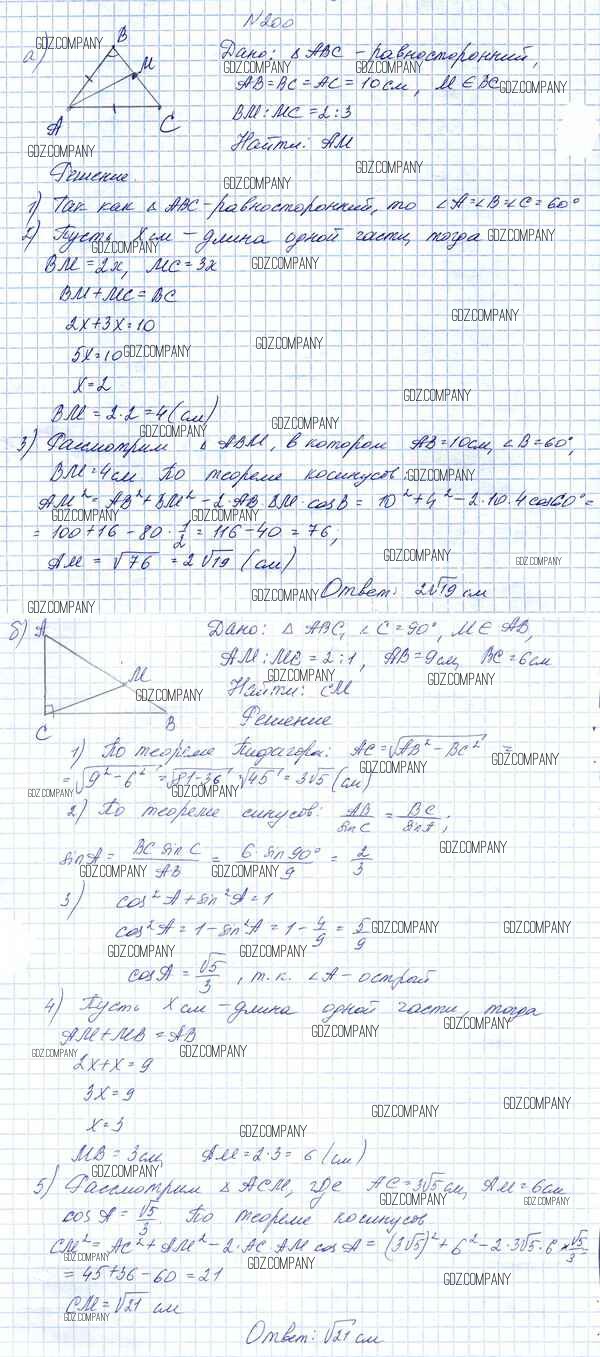 №200
а)
B
M
A
C
Дано: △ ABC - равносторонний,
AB=BC=AC=10 см, M ∈ BC
BM:MC=2:3
Найти: AM
Решение
1) Так как △ ABC - равносторонний, то ∠A=∠B=∠C=60°
2) Пусть x см - длина одной части, тогда
BM=2x, MC=3x
BM+MC=BC
2x+3x=10
5x=10
x=2
BM=2·2=4(см)
3) Рассмотрим △ ABM, в котором AB=10см, ∠B=60°,
BM=4см. По теореме косинусов:
AM²=AB²+BM²-2·AB·BM·cosB=10²+4²-2·10·4cos60°=
=100+16-80·1/2=116-40=76,
AM=√76=2√19 (см)
Ответ: 2√19 см
б)
A
M
C
B
Дано: △ ABC, ∠C=90°, M ∈ AB,
AM:MB=2:1, AB=9см, BC=6см
Найти: CM
Решение
1) По теореме Пифагора: AC=√AB²-BC² =
=√9²-6²=√81-36=√45=3√5(см)
2) По теореме синусов: AB/sinC=BC/sinA;
sinA=BC·sinC/AB=6·sin90°/9=2/3
3) cos²A+sin²A=1
cos²A=1-sin²A=1-4/9=5/9
cosA=√5/3, т.к. ∠A-острый
4) Пусть x см - длина одной части, тогда
AM+MB=AB
2x+x=9
3x=9
x=3
MB=3см, AM=2·3=6(см)
5) Рассмотрим △ ACM, где AC=3√5см, AM=6см
cosA=√5/3. По теореме косинусов
CM²=AC²+AM²-2·AC·AM·cosA=(3√5)²+6²-2·3√5·6·√5/3
=45+36-60=21
CM=√21 см
Ответ: √21 см
GDZ.COMPANY